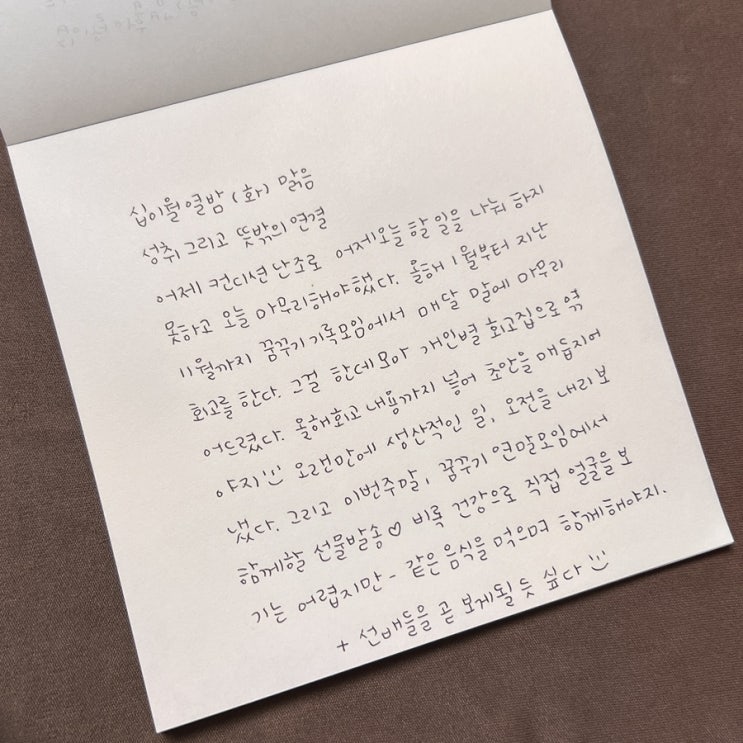 십이월 열밤 (화) 맑음
성취 그리고 뜻밖의 연결
어제 컨디션 난조로 어제오늘 할 일을 나눠 하지
못하고 오늘 마무리해야했다. 올해 1월부터 지난
11월까지 꿈꾸기 기록모임에서 매달 말에 마무리
회고를 한다. 그걸 한데모아 개인별 회고집으로 엮
어드렸다. 올해회고 내용까지 넣어 초안을 매듭지어
야지 :) 오랜만에 생산적인 일, 오전을 내리 보
냈다. 그리고 이번주말, 꿈꾸기 연말모임에서
함께할 선물발송♡ 비록 건강으로 직접 얼굴을 보
기는 어렵지만- 같은 음식을 먹으며 함께해야지.
+ 선배들을 곧 보게될 듯 싶다 :)